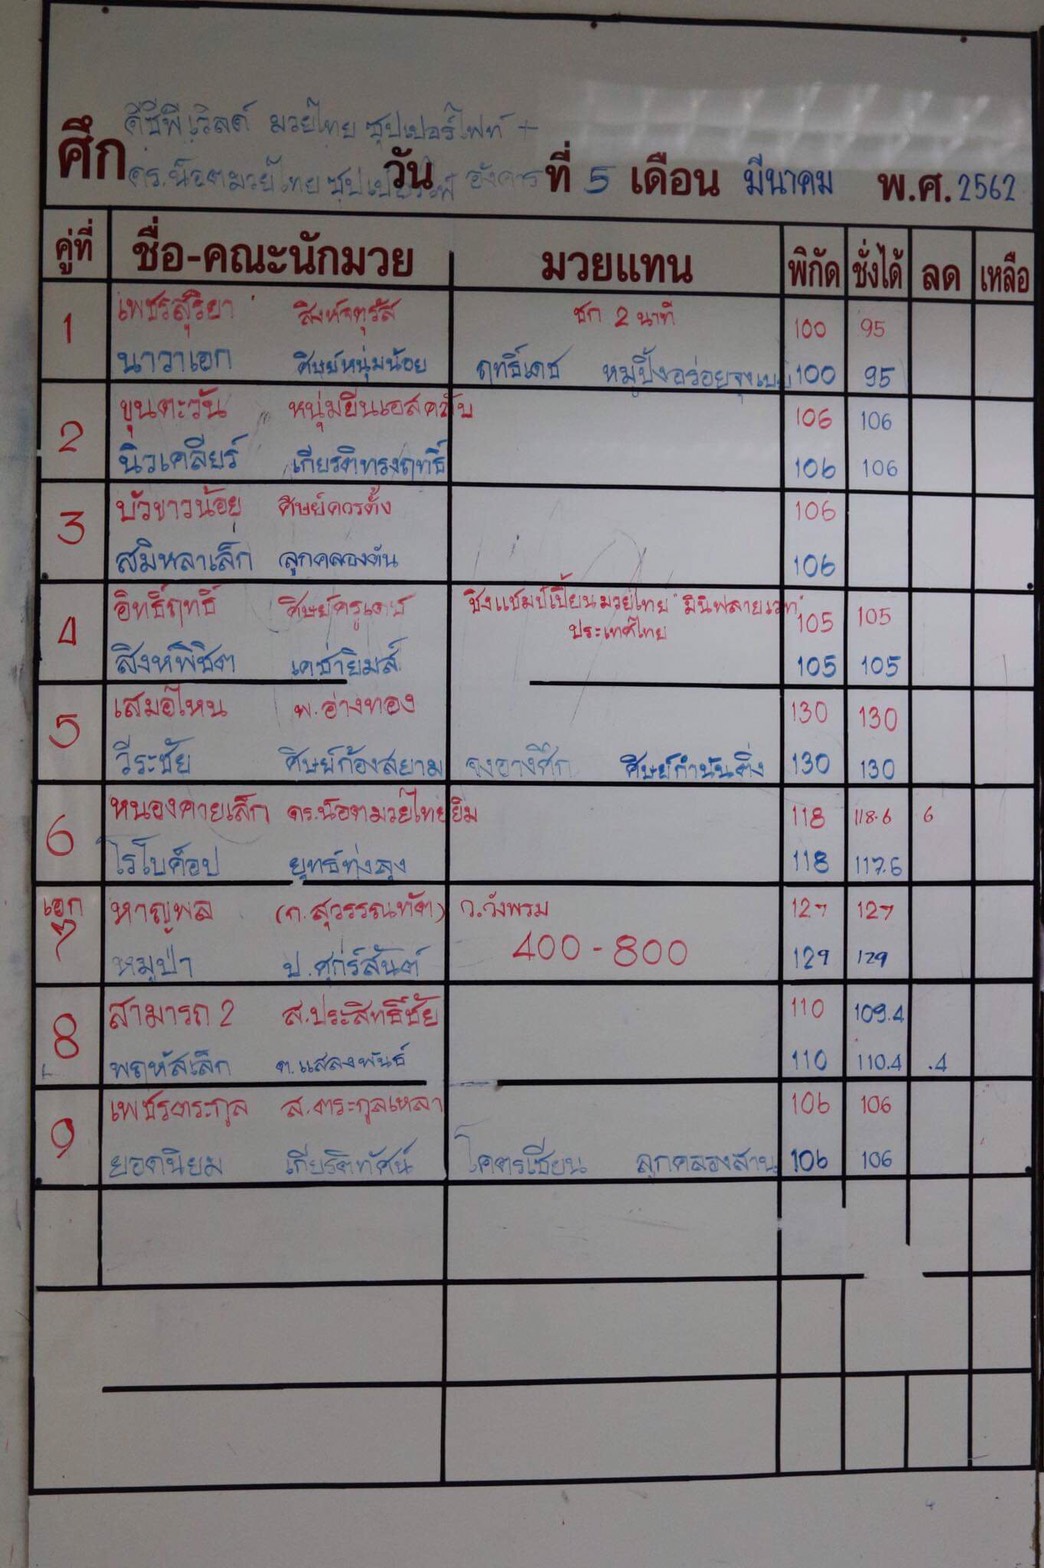 ศึก ดีบีพีเวิลด์ มวยไทย ซุปเปอร์ไฟท์ +
ดร.น็อตมวยไทย วัน อังคาร ที่ 5 เดือน มีนาคม พ.ศ. 2562
คู่ที่ ชื่อ-คณะนักมวย มวยแทน พิกัด ชั่งได้ ลด เหลือ
1 เพชรสุริยา สิงห์จตุรัส ชก 2 นาที 100 95
นาวาเอก ศิษย์หนุ่มน้อย ฤทธิ์เดช หมูปิ้งอร่อยจุงเบย 100 95
2 ขุนตะวัน หนุ่มยืนเอสคลับ 106 106
นิวเคลียร์ เกียรติทรงฤทธิ์ 106 106
3 บัวขาวน้อย ศิษย์ควรตั้ง 106
สมิหลาเล็ก ลูกคลองตัน 106
4 อิทธิ์ฤทธิ์ ศิษย์ครูเดช ชิงแชมป์เปี้ยนมวยไทย "มินิฟลายเวท" 105 105
ประเทศไทย
สิงห์พิชิต เดชายิมส์ 105 105
5 เสมอไหน พ.อ่างทอง 130 130
วีระชัย ศิษย์ก้องสยาม จงอางศึก ศิษย์กำนันติ่ง 130 130
6 หนองคายเล็ก ดร.น็อตมวยไทยยิม 118 118.6 6
โรโบค็อป ยุทธ์ทุ่งลุง 118 117.6
เอก
7 หาญพล (ก.สุวรรณทัต) ว.วังพรม 127 127
400-800
หมูป่า ป.ศุภร์สันต์ 129 129
8 สามารถ 2 ส.ประสิทธิ์ชัย 110 109.4
พฤหัสเล็ก ต.แสงพันธ์ 110 110.4 .4
9 เพชรตระกูล ส.ตระกูลเหลา 106 106
ยอดนิยม เกียรติทัศน์ โคตรเซียน ลูกคลองสาน 106 106